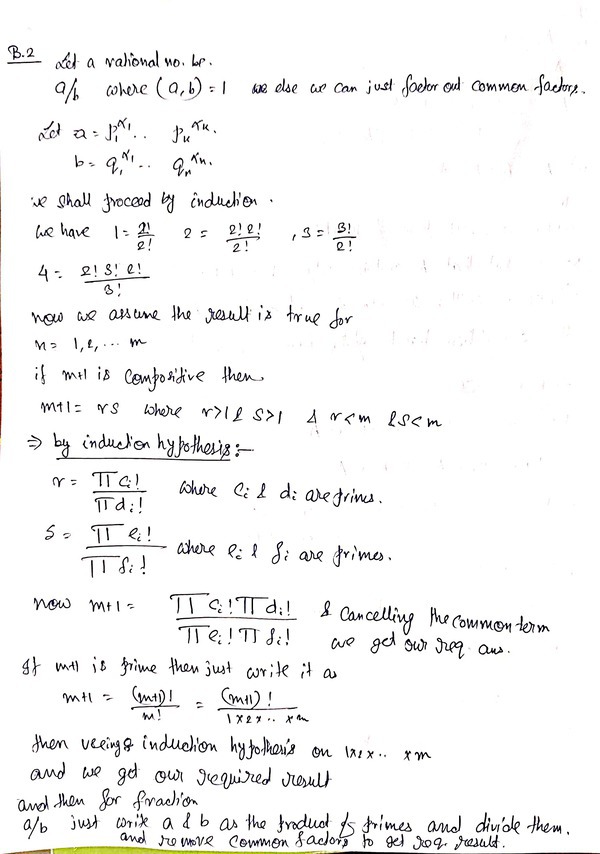 B.2 Let a rational no. be.
a/b where (a,b) = 1 we else we can just factor out common factors.
Let a = p₁^α₁ .. pₖ^αₖ.
b = q₁^α₁ .. qₙ^αₙ.
we shall proceed by induction.
we have 1 = 2!/2! 2 = 2! 2!/2! , 3 = 3!/2!
4 = 2! 3! 2!/3!
now we assume the result is true for
n = 1, 2, ... m
if m+1 is compositive then
m+1 = rs where r>1 & s>1 & r<m & s<m
⇒ by induction hypothesis:-
r = ∏ cᵢ!/∏ dᵢ! where cᵢ & dᵢ are primes.
s = ∏ eᵢ!/∏ fᵢ! where eᵢ & fᵢ are primes.
now m+1 = ∏ cᵢ! ∏ dᵢ!/∏ eᵢ! ∏ fᵢ! & cancelling the common term
we get our req ans.
If m+1 is prime then just write it as
m+1 = (m+1)!/m! = (m+1)!/1×2×..×m
then induction hypothesis on 1×2×.. ×m
and we get our required result
and then for fraction
a/b just write a & b as the product of primes and divide them.
and remove common factors to get req. result.